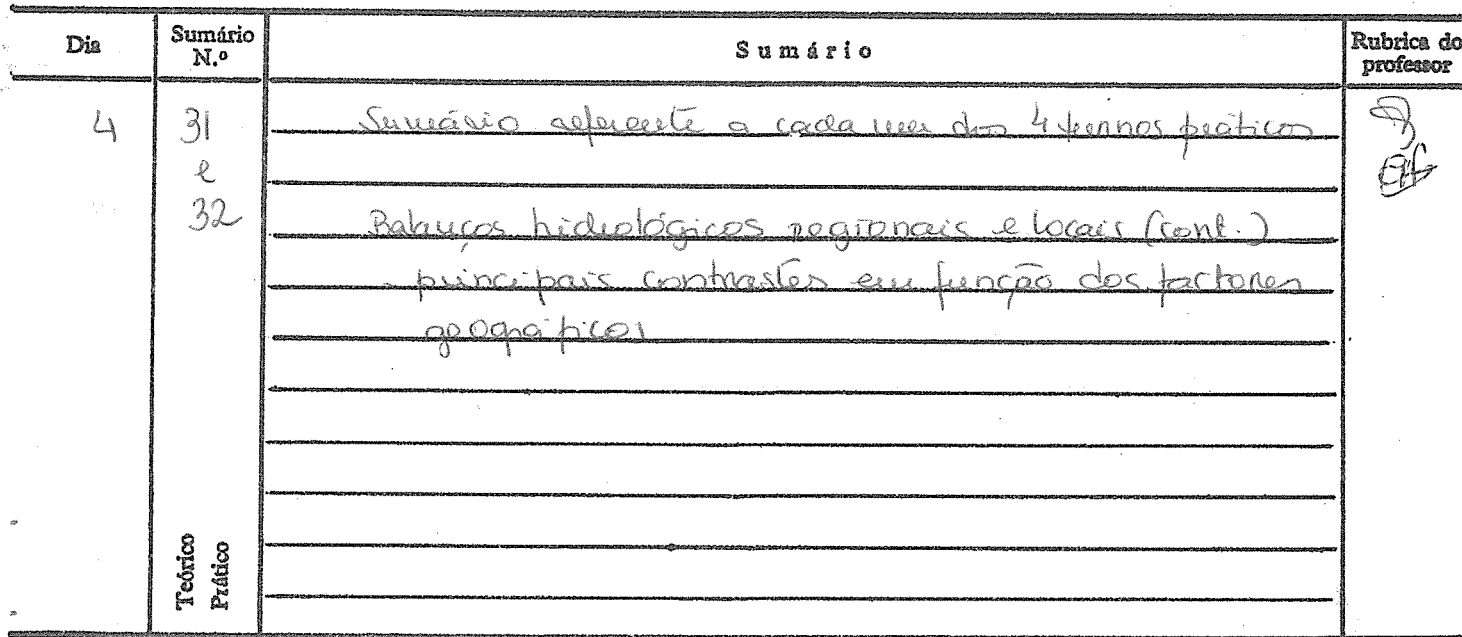 Dia
Sumário N.º
Sumário
Rubrica do professor
4
31
e
32
Sumário referente a cada um dos 4 turnos práticos
Balanços hidrológicos regionais e locais (cont.)
. principais contrastes em função dos factores
geográficos
Teórico
Prático